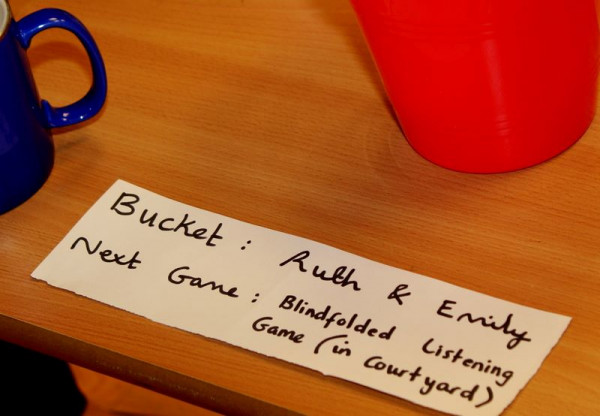 Bucket : Ruth & Emily
Next Game : Blindfolded Listening
Game (in Courtyard)